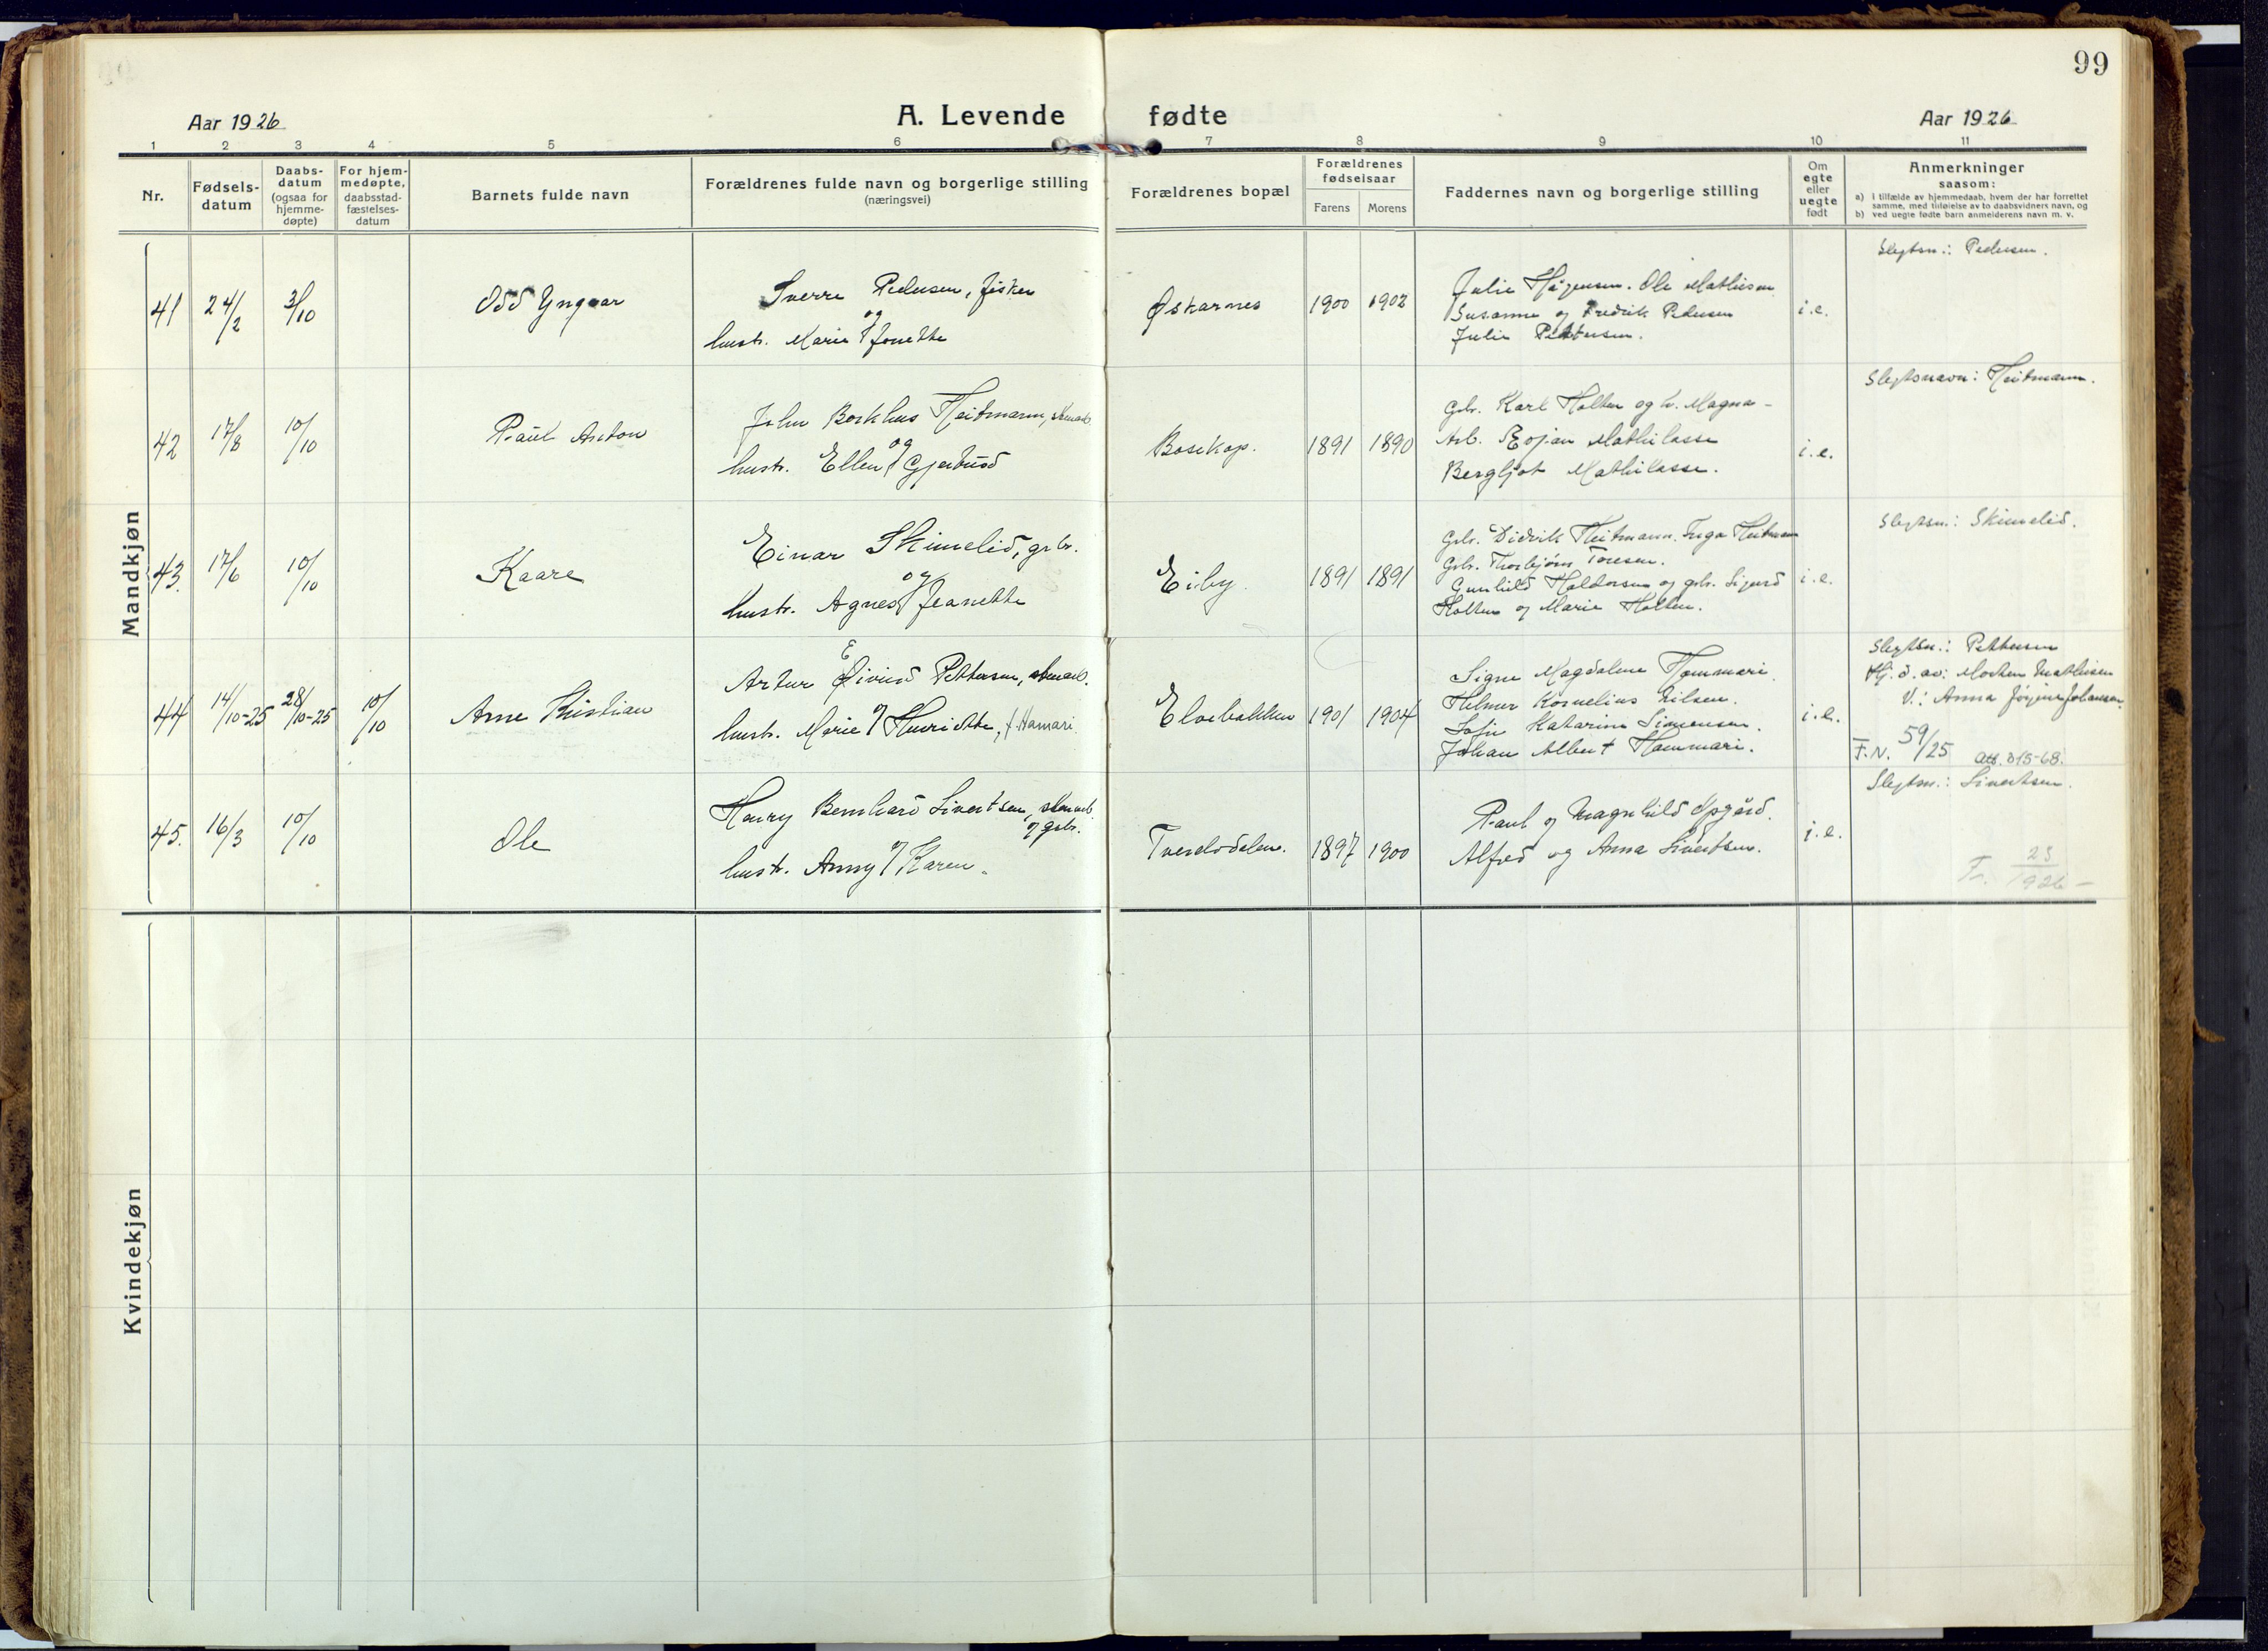 99
Aar 1926
A. Levende fødte
Aar 1926
1 2 3 4 5 6 7 8 9 10 11
Nr.
Fødsels-
datum
Daabs-
datum
(ogsaa for
hjemme-
døpte)
For hjem-
medøpte,
daabsstad-
fæstelses-
datum
Barnets fulde navn
Forældrenes fulde navn og borgerlige stilling
(næringsvei)
Forældrenes bopæl
Forældrenes
fødselsaar
Farens Morens
Faddernes navn og borgerlige stilling
Om
egte
eller
uegte
født
Anmerkninger
saasom:
a) i tilfælde av hjemmedaab, hvem der har forrettet
samme, med tilføielse av to daabsvidners navn, og
b) ved uegte fødte barn anmelderens navn m. v.
Mandkjøn
41 24/2 3/10
Odd Yngvar
Sverre Pedersen, fisker
og
hustr. Marie Jonette
Øskarnes
1900 1902
Julie Høgensen. Ole Mathisen
Susanne og Fredrik Pedersen
Julie Pettersen.
i.e.
Slegtsn.: Pedersen.
42 17/8 10/10
Paul Anton
John Borkhus Heitmann, stenarb.
og
hustr. Ellen Gjertrud
Bosekop.
1891 1890
Gbr. Karl Holten og h. Magna -
Arb. Rojan Mathilasse
Bergljot Mathilasse.
i.e.
Slegtsnavn: Heitmann.
43. 17/6 10/10
Kaare
Einar Skimelid, grbr.
og
hustr. Agnes Jeanette
Eiby
1891 1891
Gbr. Didrik Heitmann. Inga Heitmann
Gbr. Thorbjørn Toresen.
Gunhild Haldorsen og gbr. Sigurd
Holten og Marie Holten.
i.e.
Slegtsn.: Skimelid.
44 14/10-25 28/10-25 10/10
Arne Kristian
E
Artur Øivind Pettersen, stenarb.
og
hustr. Marie Henriette, f. Hamari.
Elvebakken
1901 1904
Signe Magdalene Hammari.
Helmer Kornelius Nilsen.
Sofie Katarine Simensen.
Johan Albert Hammari.
i.e.
Slegtsn.: Pettersen
Hj. d. av: Morten Mathisen
V.: Anna Jørgine Johansen.
F.N. 59/25 Att. 315-68.
45. 16/3 10/10
Ole
Henry Bernhard Sivertsen, stenarb.
og gbr.
og
hustr. Anny Karen.
Tverelvdalen.
1897 1900
Paul og Magnhild Opgård.
Alfred og Anna Sivertsen.
i.e.
Slegtsn.: Sivertsen.
Fr. 23/1926 -
Kvindekjøn